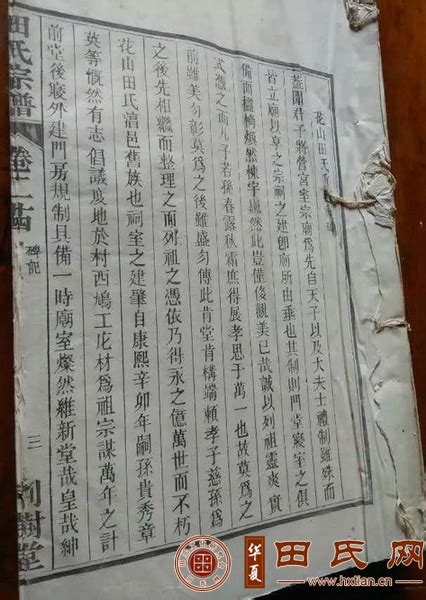 花山田氏
蓋聞君子將營宮室宗廟爲先自天子以及大夫士禮制雖殊而
皆立廟以享之宗祠之建卽廟所由垂也其制則門堂寢室之俱
備而楹桷煥然棟宇巍然此豈僅侈觀美已哉誠以列祖靈爽實
式憑之而凡子若孫春露秋霜庶得展孝思于萬一也故莫爲之
前雖美勿彰莫爲之後雖盛勿傳此肯堂肯構端賴孝子慈孫爲
之後先相繼而整理之而列祖之憑依乃得永之億萬世而不朽
花山田氏涫邑舊族也祠室之建肇自康熙辛卯年嗣孫貴秀章
英等慨然有志倡議度地於村西鳩工庀材爲祖宗謀萬年之計
前堂後寢外建門房規制具備一時廟室燦然維新堂哉皇哉紳
田氏宗譜
卷二十四
碑記
三
荆樹堂
华夏
田氏网
www.hxtian.cn